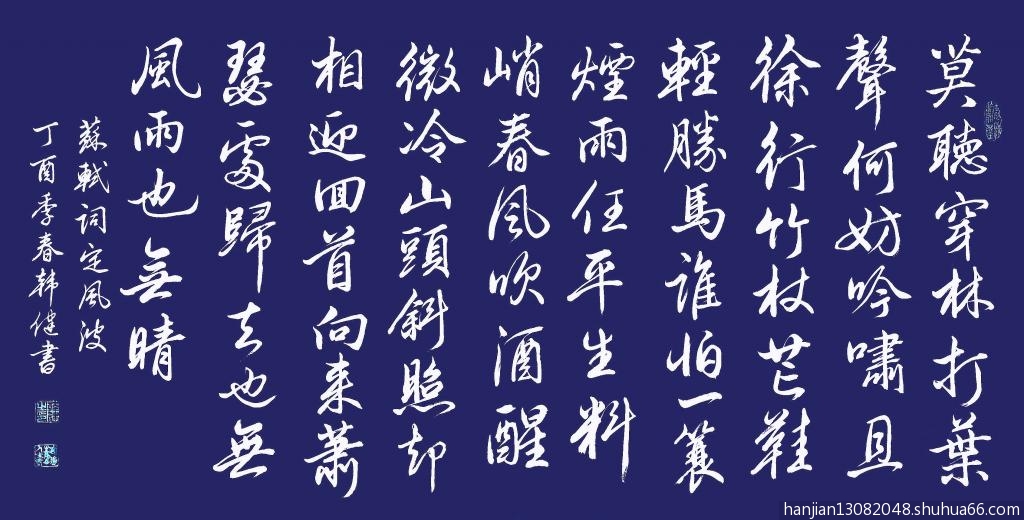 莫聽穿林打葉
聲何妨吟嘯且
徐行竹杖芒鞋
輕勝馬誰怕一蓑
煙雨任平生料
峭春風吹酒醒
微冷山頭斜照却
相迎回首向来蕭
瑟處歸去也無
風雨也無晴
蘇軾词定風波
丁酉季春韩健書
hanjian13082048.shuhua66.com